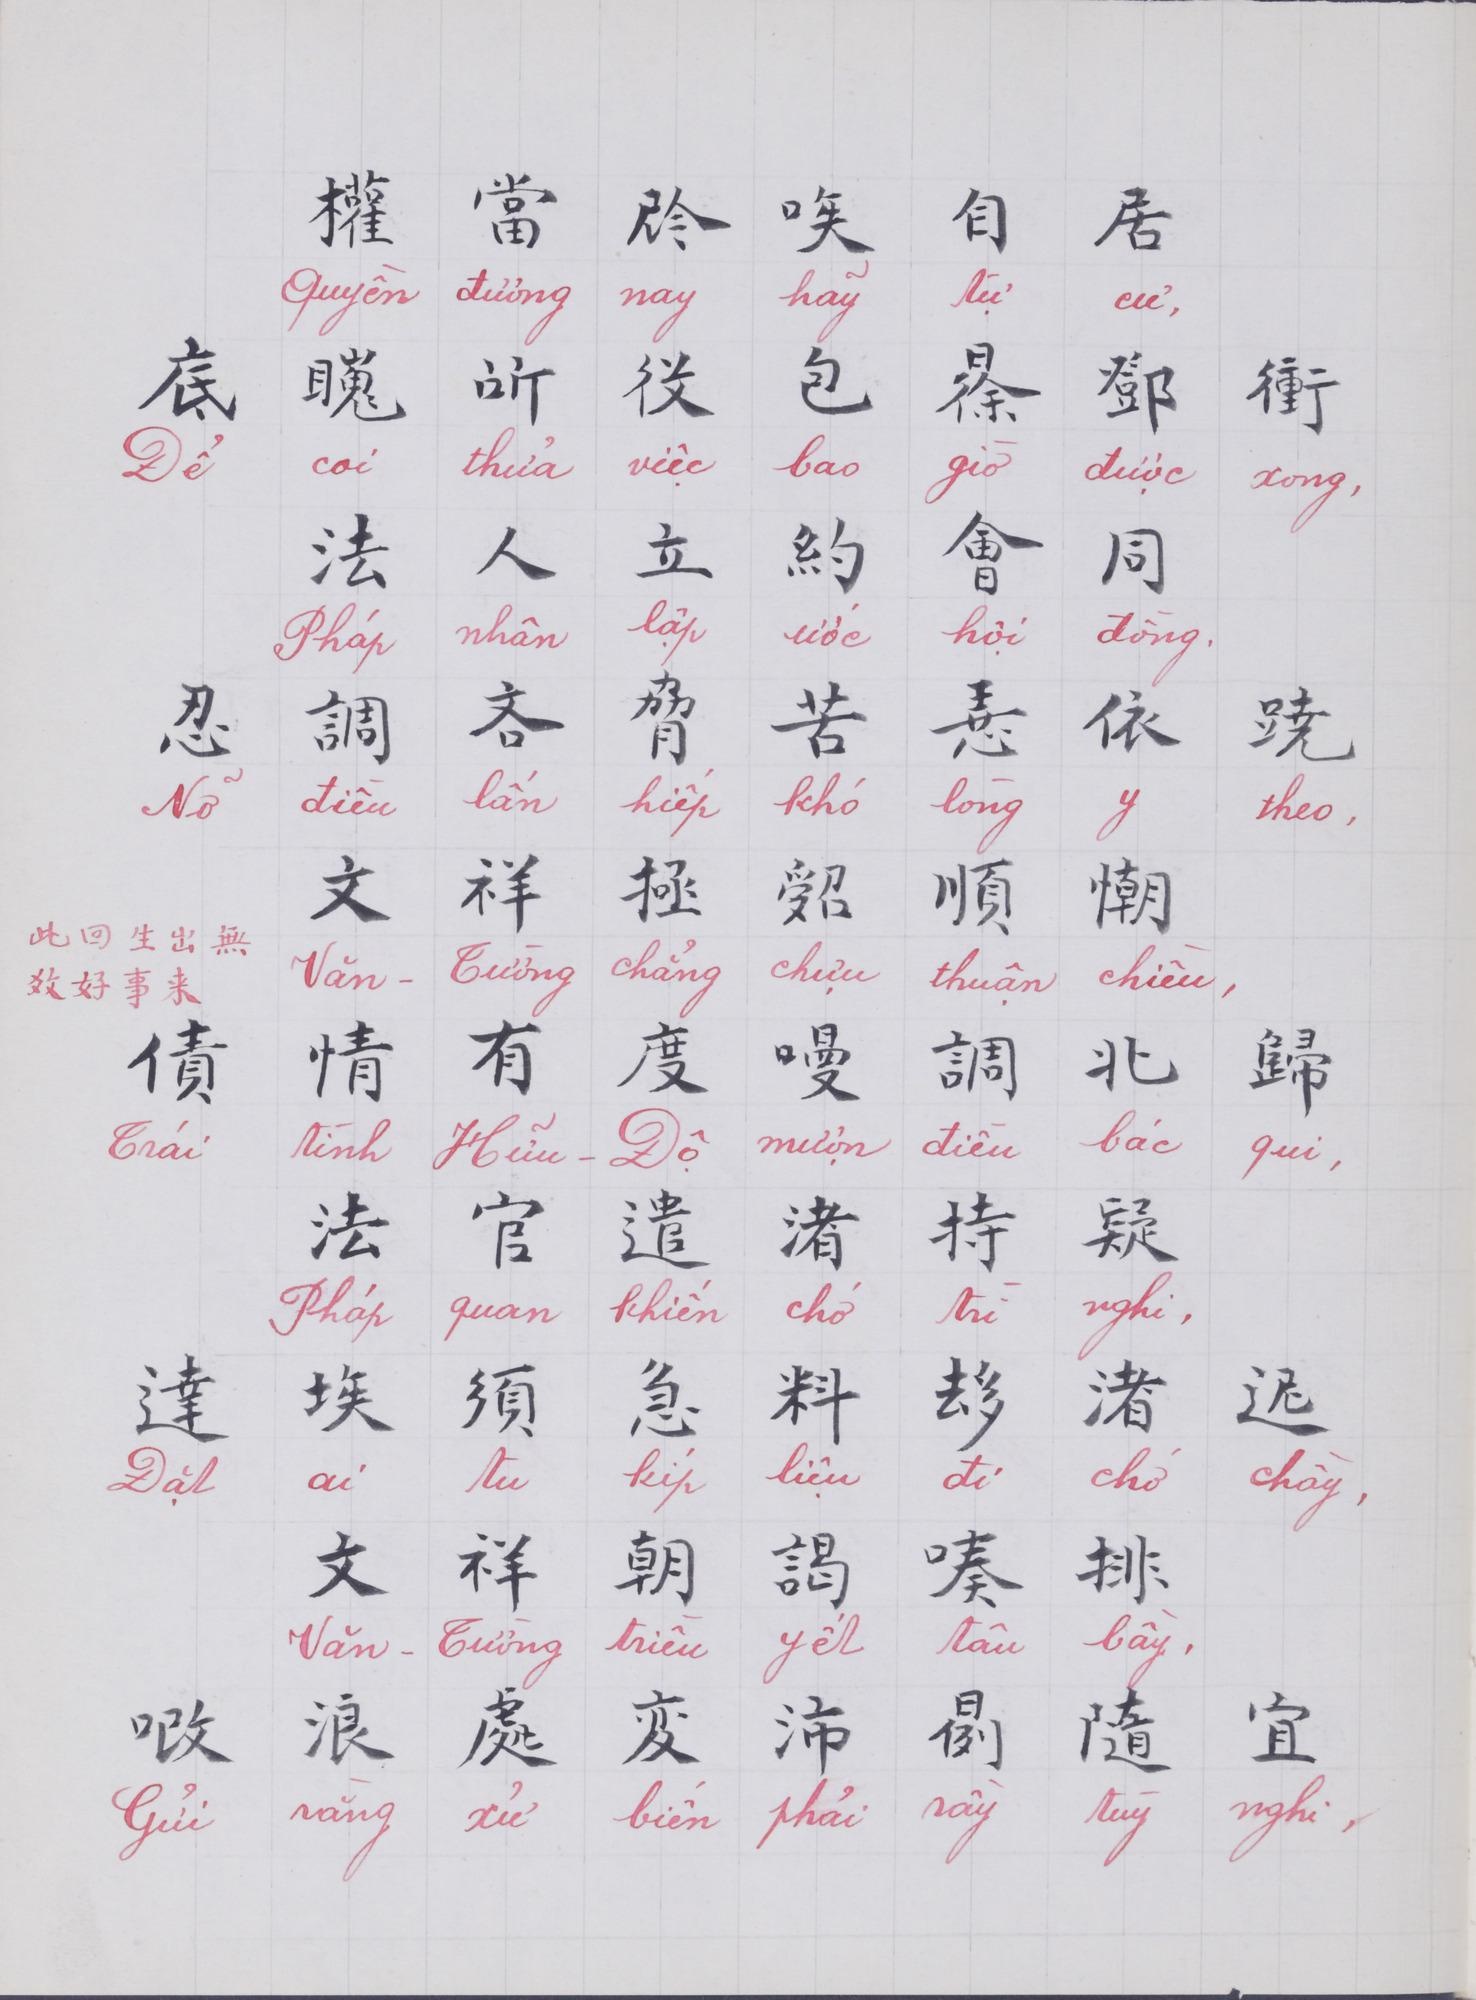 權當䏔唉自居
Quyền đương nay hãy tự cư,
底䚇所役包𣇞鄧衝
Để coi thửa việc bao giờ được xong,
法人立約會同
Pháp nhân lập ước hội đồng.
忍調吝脅苦𢚸依蹺
Nỡ điều lấn hiếp khó lòng y theo,
文祥拯𠹾順㗅
Văn-Tường chẳng chịu thuận chiều,
此回生出無
效好事来
債情有度嘪調北歸
Trái tình Hữu-Độ mượn điều bắc qui,
法官遣渚持疑
Pháp quan khiến chớ trì nghi,
達埃須急料𠫾渚迡
Đặt ai tu kíp liệu đi chớ chầy,
文祥朝謁嗪排
Văn-Tường triều yết tâu bầy,
㗂浪處変沛𣋚隨宜
Gửi rằng xử biến phải rầy tùy nghi,